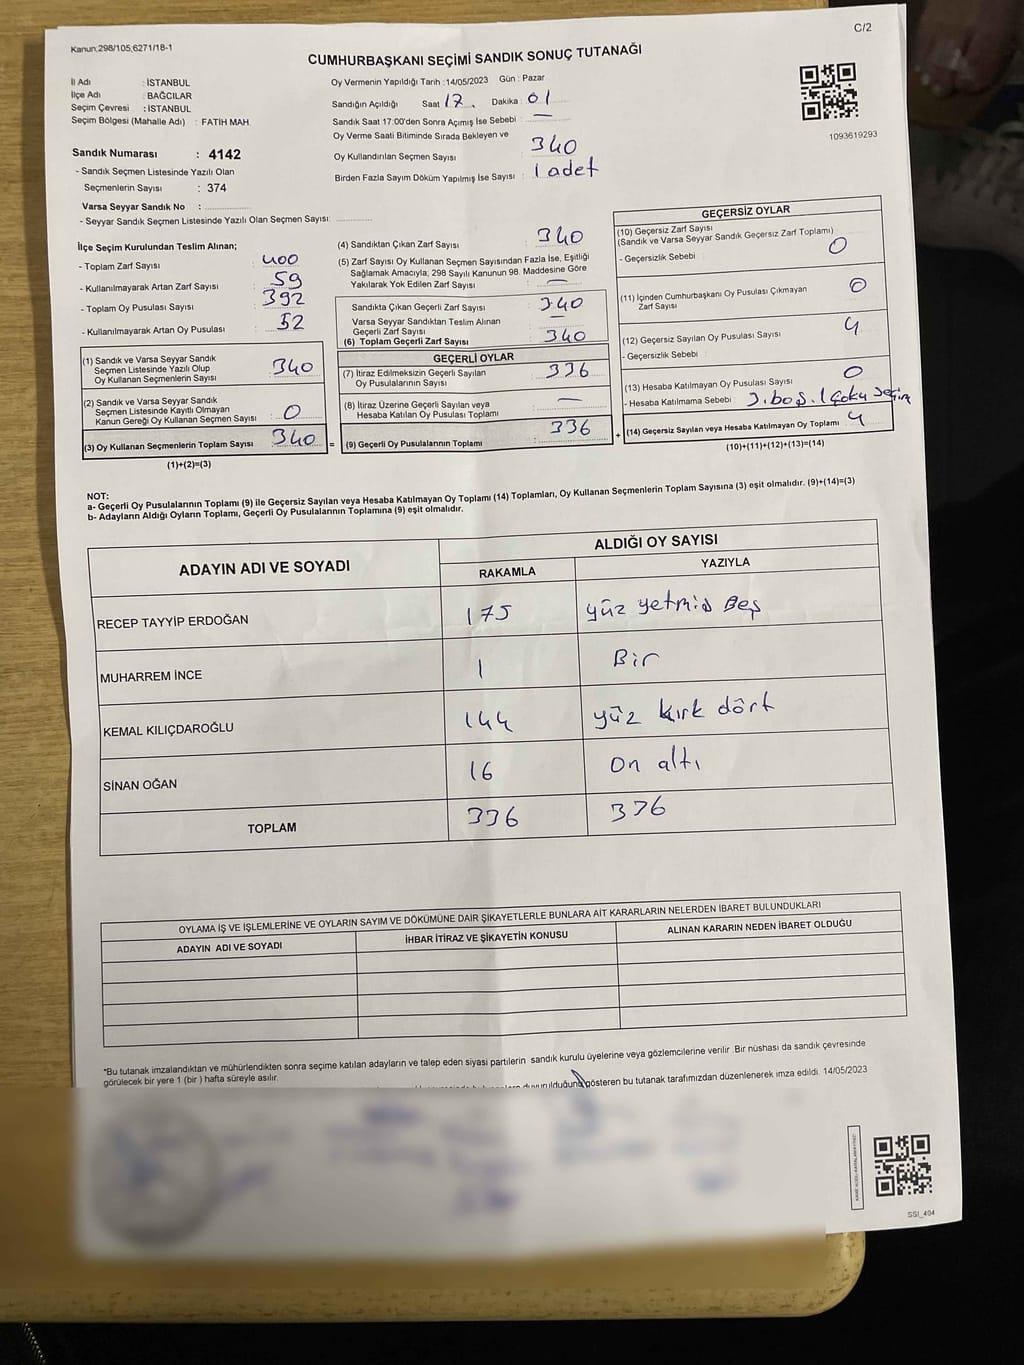 Kanun:298/105,6271/18-1
C/2
CUMHURBAŞKANI SEÇİMİ SANDIK SONUÇ TUTANAĞI
İl Adı : İSTANBUL
İlçe Adı : BAĞCILAR
Seçim Çevresi : İSTANBUL
Seçim Bölgesi (Mahalle Adı) : FATİH MAH.
Oy Vermenin Yapıldığı Tarih : 14/05/2023 Gün : Pazar
Sandığın Açıldığı Saat 17. Dakika : 01
Sandık Saat 17:00'den Sonra Açımış İse Sebebi : —
Oy Verme Saati Bitiminde Sırada Bekleyen ve
Oy Kullandırılan Seçmen Sayısı : 340
Birden Fazla Sayım Döküm Yapılmış İse Sayısı : 1 adet
1093619293
Sandık Numarası : 4142
- Sandık Seçmen Listesinde Yazılı Olan
Seçmenlerin Sayısı : 374
Varsa Seyyar Sandık No :
- Seyyar Sandık Seçmen Listesinde Yazılı Olan Seçmen Sayısı:
İlçe Seçim Kurulundan Teslim Alınan;
- Toplam Zarf Sayısı : 400
- Kullanılmayarak Artan Zarf Sayısı : 59
- Toplam Oy Pusulası Sayısı : 392
- Kullanılmayarak Artan Oy Pusulası : 52
(1) Sandık ve Varsa Seyyar Sandık
Seçmen Listesinde Yazılı Olup
Oy Kullanan Seçmenlerin Sayısı : 340
(2) Sandık ve Varsa Seyyar Sandık
Seçmen Listesinde Kayıtlı Olmayan
Kanun Gereği Oy Kullanan Seçmen Sayısı : 0
(3) Oy Kullanan Seçmenlerin Toplam Sayısı : 340
(1)+(2)=(3)
(4) Sandıktan Çıkan Zarf Sayısı : 340
(5) Zarf Sayısı Oy Kullanan Seçmen Sayısından Fazla İse, Eşitliği
Sağlamak Amacıyla; 298 Sayılı Kanunun 98. Maddesine Göre
Yakılarak Yok Edilen Zarf Sayısı : —
Sandıkta Çıkan Geçerli Zarf Sayısı : 340
Varsa Seyyar Sandıktan Teslim Alınan
Geçerli Zarf Sayısı : —
(6) Toplam Geçerli Zarf Sayısı : 340
GEÇERLİ OYLAR
(7) İtiraz Edilmeksizin Geçerli Sayılan
Oy Pusulalarının Sayısı : 336
(8) İtiraz Üzerine Geçerli Sayılan veya
Hesaba Katılan Oy Pusulası Toplamı : —
= (9) Geçerli Oy Pusulalarının Toplamı : 336
GEÇERSİZ OYLAR
(10) Geçersiz Zarf Sayısı
(Sandık ve Varsa Seyyar Sandık Geçersiz Zarf Toplamı) : 0
- Geçersizlik Sebebi :
(11) İçinden Cumhurbaşkanı Oy Pusulası Çıkmayan
Zarf Sayısı : 0
(12) Geçersiz Sayılan Oy Pusulası Sayısı : 4
- Geçersizlik Sebebi :
(13) Hesaba Katılmayan Oy Pusulası Sayısı : 0
- Hesaba Katılmama Sebebi : 3. boş. 1 çoklu seçim
+ (14) Geçersiz Sayılan veya Hesaba Katılmayan Oy Toplamı : 4
(10)+(11)+(12)+(13)=(14)
NOT:
a- Geçerli Oy Pusulalarının Toplamı (9) ile Geçersiz Sayılan veya Hesaba Katılmayan Oy Toplamı (14) Toplamları, Oy Kullanan Seçmenlerin Toplam Sayısına (3) eşit olmalıdır. (9)+(14)=(3)
b- Adayların Aldığı Oyların Toplamı, Geçerli Oy Pusulalarının Toplamına (9) eşit olmalıdır.
ADAYIN ADI VE SOYADI
ALDIĞI OY SAYISI
RAKAMLA YAZIYLA
RECEP TAYYİP ERDOĞAN 175 yüz yetmiş Beş
MUHARREM İNCE 1 Bir
KEMAL KILIÇDAROĞLU 144 yüz kırk dört
SİNAN OĞAN 16 On altı
TOPLAM 336 336
OYLAMA İŞ VE İŞLEMLERİNE VE OYLARIN SAYIM VE DÖKÜMÜNE DAİR ŞİKAYETLERLE BUNLARA AİT KARARLARIN NELERDEN İBARET BULUNDUKLARI
ADAYIN ADI VE SOYADI İHBAR İTİRAZ VE ŞİKAYETİN KONUSU ALINAN KARARIN NEDEN İBARET OLDUĞU
*Bu tutanak imzalandıktan ve mühürlendikten sonra seçime katılan adayların ve talep eden siyasi partilerin sandık kurulu üyelerine veya gözlemcilerine verilir .Bir nüshası da sandık çevresinde
görülecek bir yere 1 (bir ) hafta süreyle asılır.
duyurulduğunu gösteren bu tutanak tarafımızdan düzenlenerek imza edildi. 14/05/2023
SSI_404